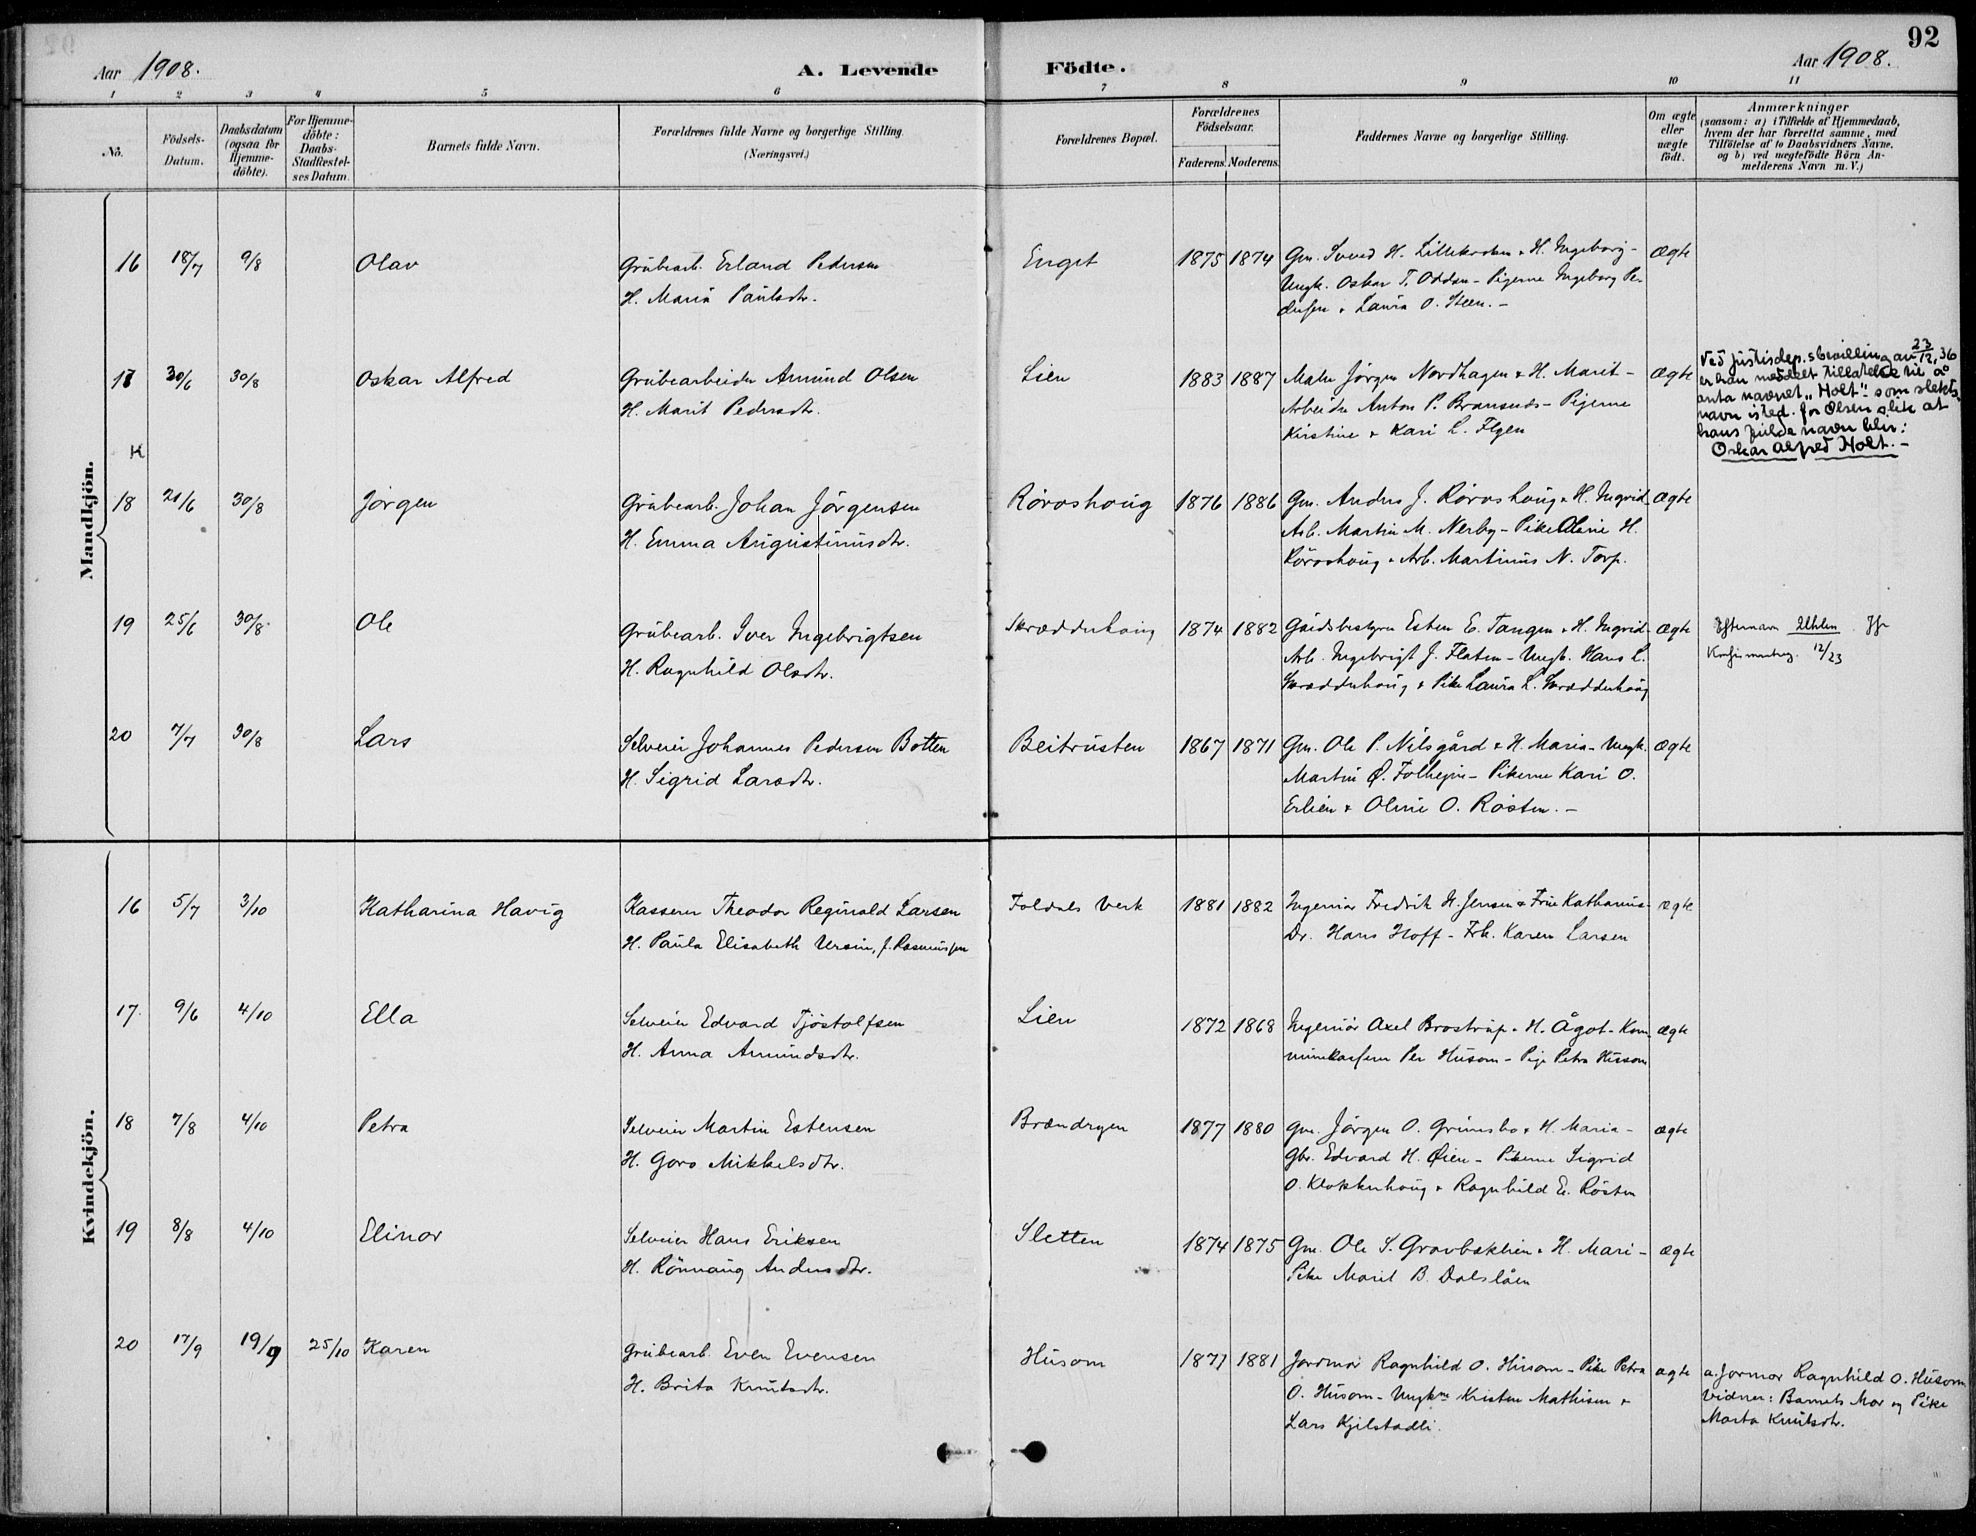 92
Aar 1908.
A. Levende Födte.
Aar 1908.
1 2 3 4 5 6 7 8 9 10 11
No.
Födsels-Datum.
Daabsdatum (ogsaa for Hjemme-döbte).
For Hjemme-döbte: Daabs-Stadfæstel-ses Datum.
Barnets fulde Navn.
Forældrenes fulde Navne og borgerlige Stilling.
(Næringsvei.)
Forældrenes Bopæl.
Forældrenes Födselsaar.
Faderens. Moderens.
Faddernes Navne og borgerlige Stilling.
Om ægte eller uægte födt.
Anmærkninger
(saasom: a) i Tilfælde af Hjemmedaab,
hvem der har forrettet samme, med
Tilföielse af to Daabsvidners Navne,
og b) ved uægtefödte Börn An-
melderens Navn m. V.)
Mandkjön.
16 18/7 9/8 Olav Grubearb. Erland Pedersen Enget 1875 1874 Gm. Svend H. Lillekroken & H. Ingeborg- Ægte
H. Maria Paulsdtr. Ungk. Oskar T. Odden - Pigerne Ingeborg Pe-
dersen & Laura O. Steen. -
17 30/6 30/8 Oskar Alfred Grubearbeider Amund Olsen Lien 1883 1887 Maler Jörgen Nordhagen & H. Marit - Ægte
H. Marit Pedersdtr. Arbeider Anton P. Bransnes - Pigerne
Kirstine & Kari L. Elgen
Ved Justisdep.s bevilling av 23/12, 36
er han meddelt tillatelse til å
anta navnet "Holt" som slekts-
navn isted. for Olsen slik at
hans fulde navn blir:
Oskar Alfred Holt. -
K
18 21/6 30/8 Jörgen Grubearb. Johan Jörgensen Röroshoug 1876 1886 Gm. Anders J. Röroshoug & H. Ingrid Ægte
H. Emma Augustinusdtr. Arb. Martin M. Nerby - Pike Oline H.
Röroshoug & Arb. Martinus N. Torp.
19 25/6 30/8 Ole Grubearb. Iver Ingebrigtsen Skrædderhoug 1874 1882 Gårdsbestyrer Esten E. Tangen & H. Ingrid- Ægte Efternavn Uhlen
H. Ragnhild Olsdtr. Arb. Ingebrigt J. Flaten - Ungk. Hans L. 12/23
Skrædderhoug & Pike Laura L. Skrædderhoug
20 7/7 30/8 Lars Selveier Johannes Pedersen Botten Beitrusten 1867 1871 Gm. Ole P. Nilsgård & H. Maria - Ungk. Ægte
H. Sigrid Larsdtr. Martin Ø. Tolhejm - Pikerne Kari O.
Erlien & Oline O. Rösten. -
Kvindekjön.
16 5/7 3/10 Katharina Havig Kasserer Theodor Reginald Larsen Foldals Verk 1881 1882 Ingeniør Fredrik H. Jensen & Frue Katharina - ægte
H. Paula Elisabeth Ursin, f. Rasmussen Dr. Hans Hoff - Frk. Karen Larsen
17. 9/6 4/10 Ella Selveier Edvard Tjöstolfsen Lien 1872 1868 Ingeniör Axel Brostrup & H. Ågot - Kom- ægte
H. Anna Amundsdtr. munekasserer Per Husom - Pige Petra Husom
18 7/8 4/10 Petra Selveier Martin Estensen Brændryen 1877 1880 Gm. Jörgen O. Grimsbo & H. Maria - ægte
H. Goro Mikkelsdtr. Gbr. Edvard H. Øien - Pikerne Sigrid
O. Klokkerhoug & Ragnhild E. Rösten
19 8/8 4/10 Elinor Selveier Hans Eriksen Sletten 1874 1875 Gm. Ole S. Grovbæklien & H. Mari - ægte
H. Rönnaug Andersdtr. Pike Marit B. Dalslåen
20 17/9 19/9 25/10 Karen Grubearb. Even Evensen Husom 1877 1881 Jordmor Ragnhild O. Husom - Pike Petra ægte a. Jormor Ragnhild O. Husom
H. Brita Knutsdtr. O. Husom - Ungkne Kristen Mathisen & Vidner: Barnets Mor og Pike
Lars Kjilstadli. Marta Knutsdtr.